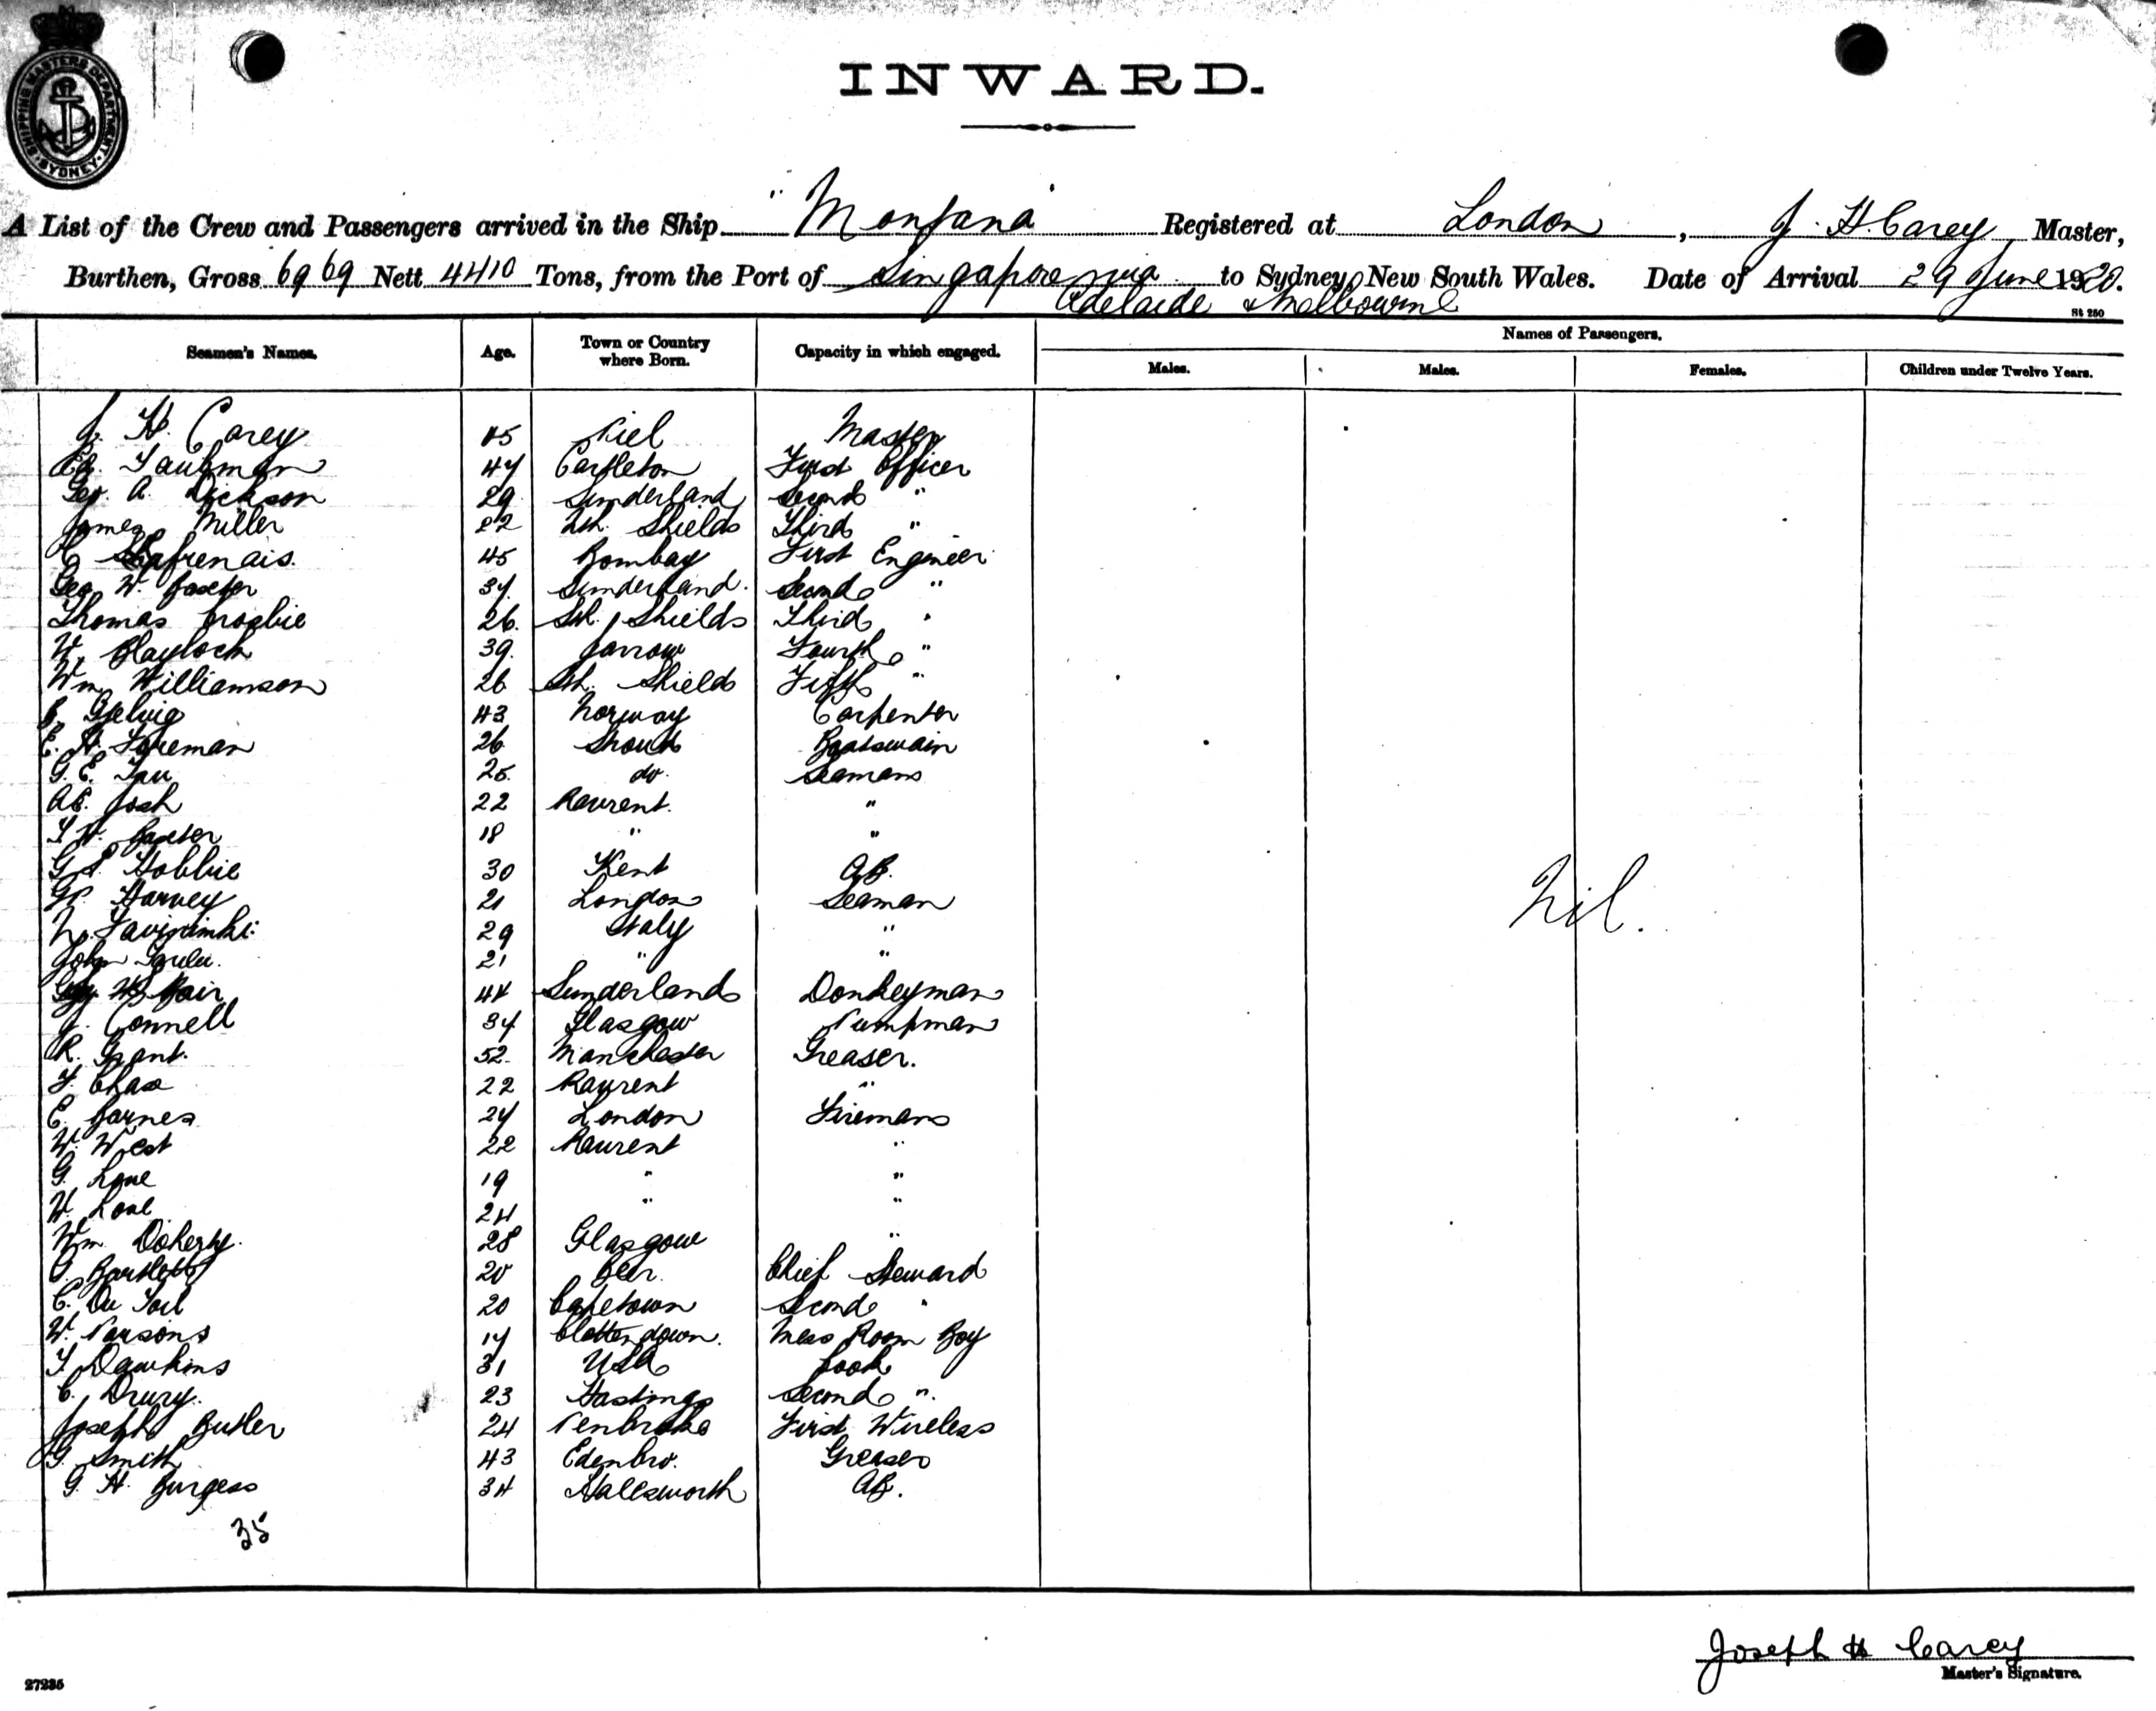 SHIPPING MASTERS DEPARTMENT · SYDNEY ·
INWARD.
A List of the Crew and Passengers arrived in the Ship "Montana" Registered at London, J. H. Carey Master,
Burthen, Gross 6969 Nett 4410 Tons, from the Port of Singapore via to Sydney, New South Wales. Date of Arrival 29 June 1920.
Adelaide & Melbourne
St 250
Seamen's Names. Age. Town or Country where Born. Capacity in which engaged. Names of Passengers.
Males. Males. Females. Children under Twelve Years.
J. H. Carey 45 Kiel Master
Taubman 47 Castleton First Officer
Geo. A. Dickson 29 Sunderland Second "
James Miller 22 Nth. Shields Third "
45 Bombay First Engineer
Geo W. Baxter 37 Sunderland. Second "
Thomas Crosbie 26. Sth. Shields Third "
W. Blaylock 39. Jarrow Fourth "
Wm Williamson 26 Sth. Shields Fifth "
43 Norway Carpenter
E. H. Foreman 26 Boatswain
G. E. 25. do. Seaman
22 "
18 " "
G S Hobbie 30 Kent AB.
Harvey 21 London Seaman
29 Italy "
John 21 " "
44 Sunderland Donkeyman
J. Connell 34 Glasgow Pumpman
R. Grant. 52. Manchester Greaser.
22 "
E. Barnes 24 London Fireman
W. West 22 "
G. Love 19 " "
W. Love 24 " "
Wm. Doherty. 28 Glasgow "
Bartlett 20 Beer. Chief Steward
C. Du Toit 20 Capetown Second "
W. Parsons 17 Chattenden. Mess Room Boy
Dawkins 31 USA Cook
C. Drury. 23 Hastings Second ".
Joseph Butler 24 Penbroke First Wireless
G. Smith 43 Edenbro. Greaser
G. H. Burgess 34 Halesworth AB.
Nil.
35
Joseph H Carey
Master's Signature.
27235